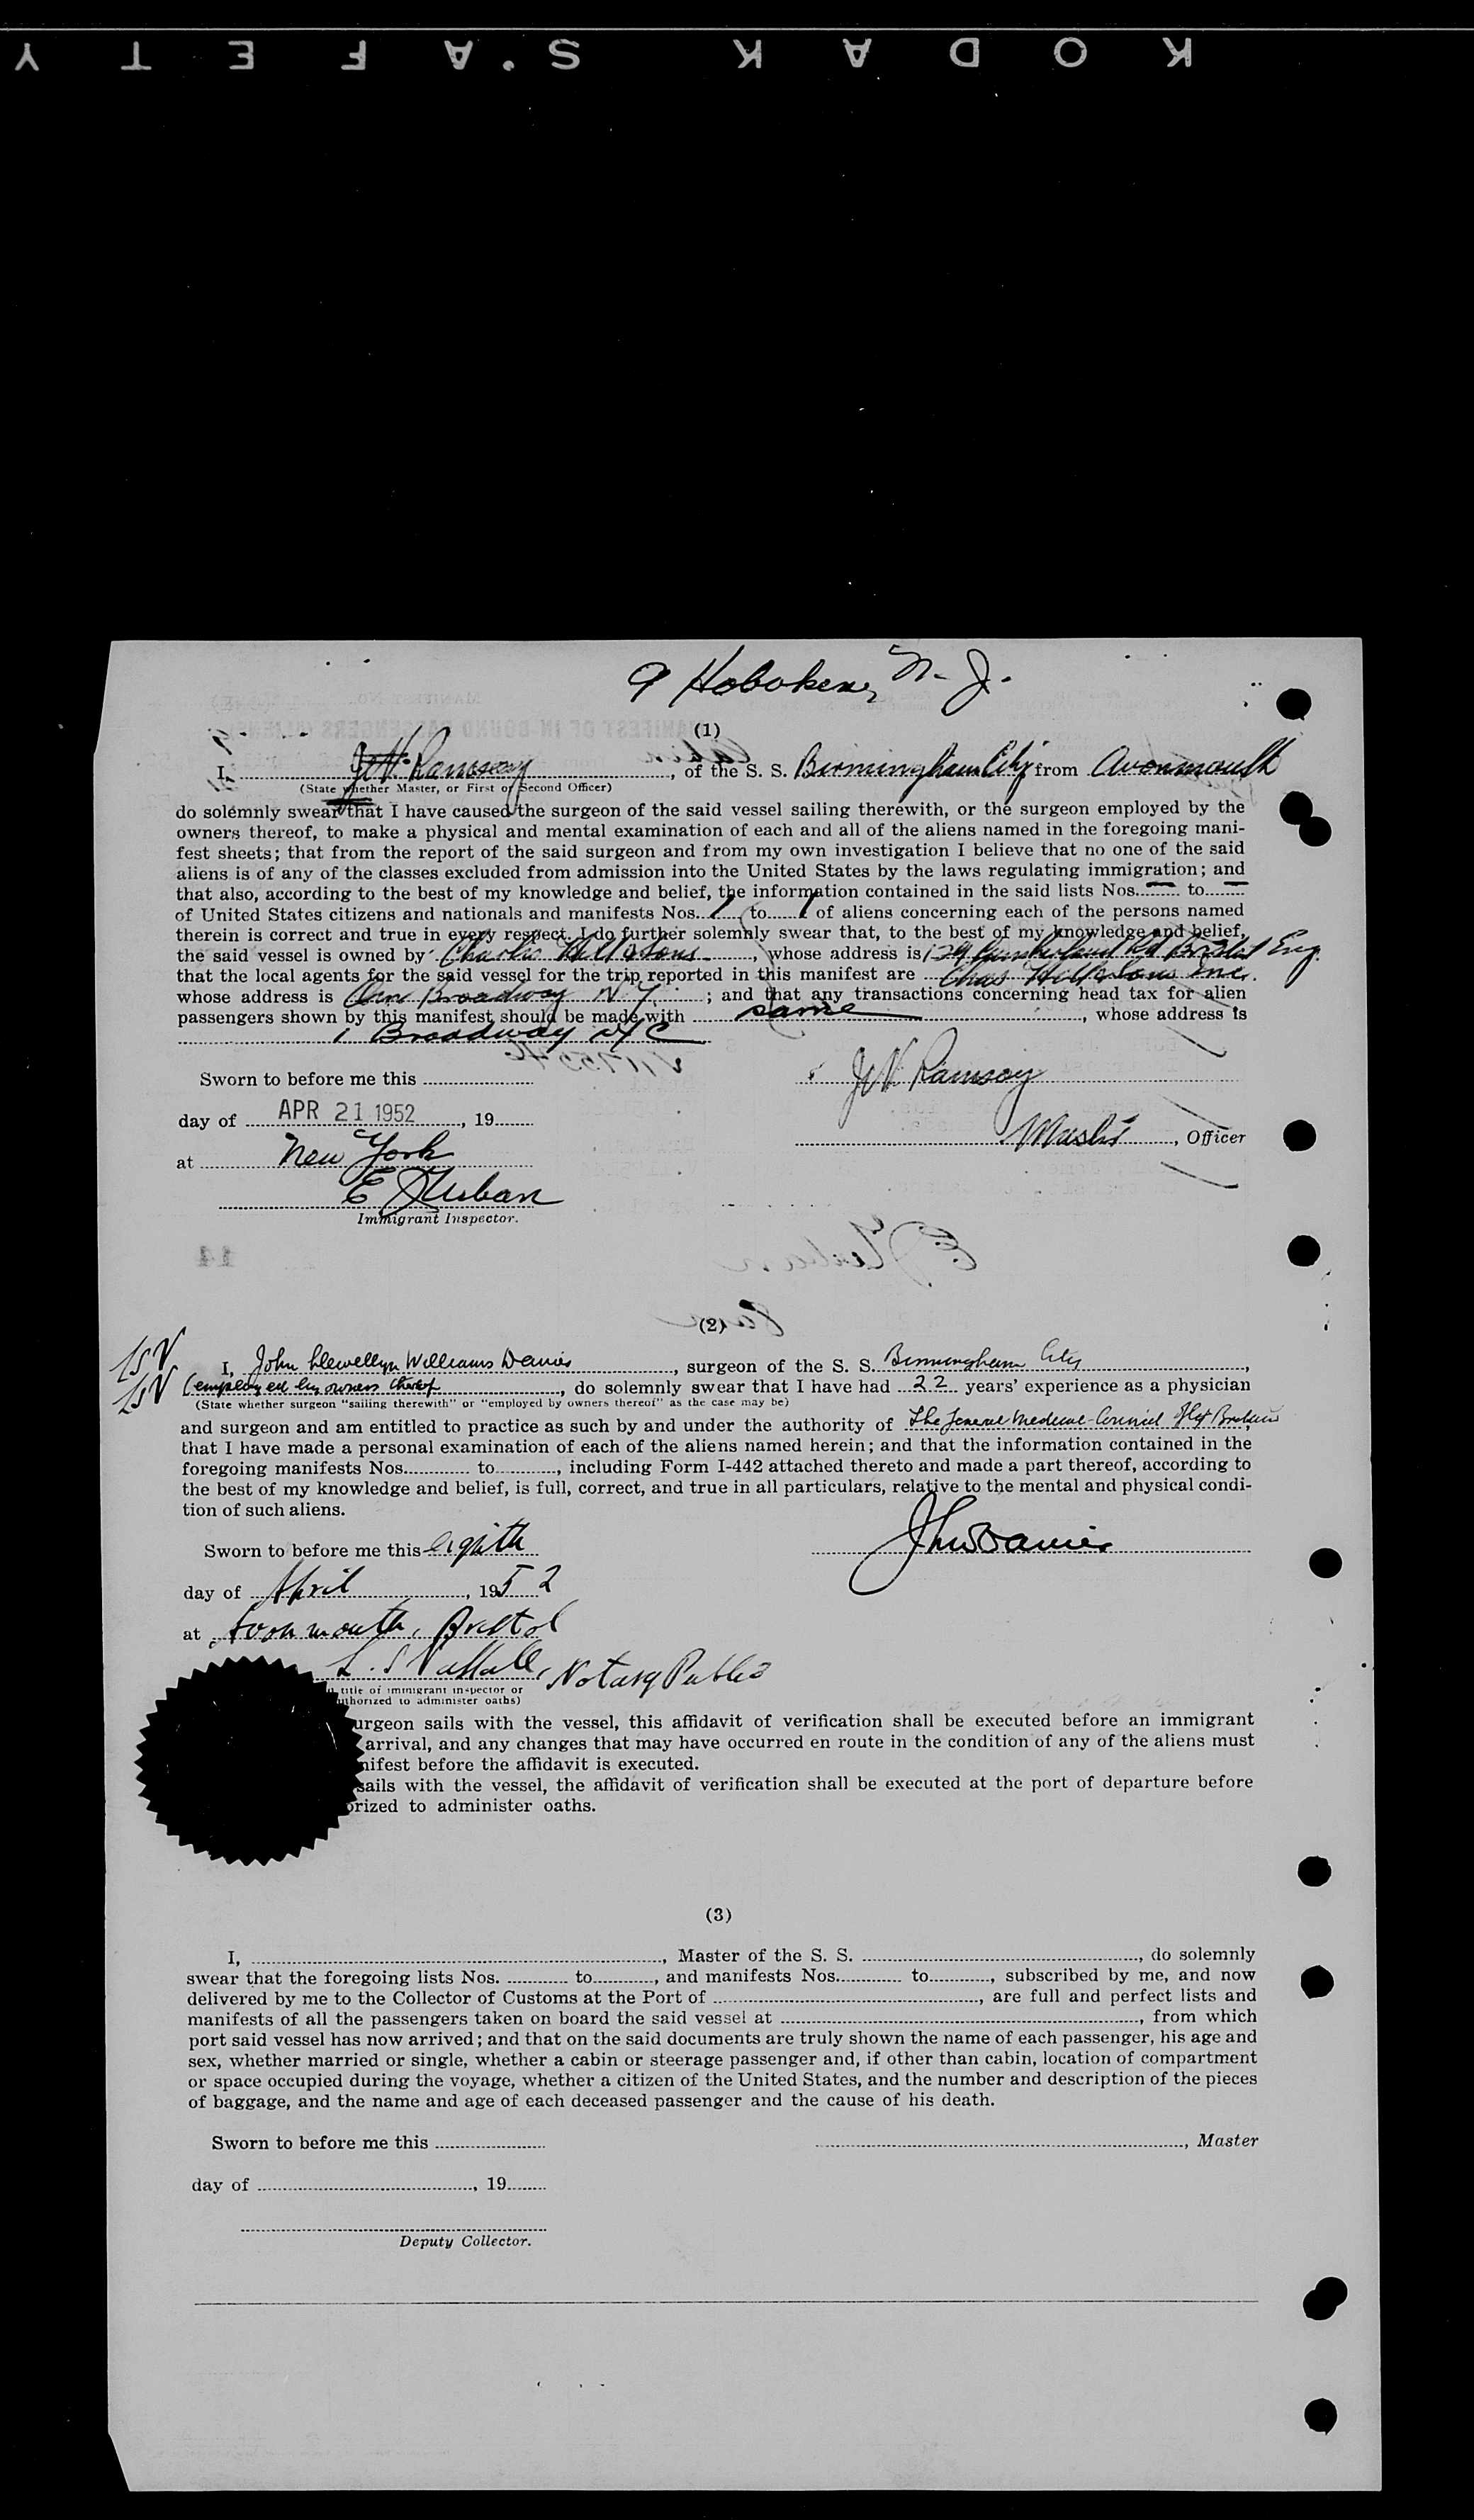 KODAK S'AFETY
9 Hoboken, N. J.
(1)
I, J W Ramsay, of the S. S. Birmingham City from Avonmouth
(State whether Master, or First or Second Officer)
do solemnly swear that I have caused the surgeon of the said vessel sailing therewith, or the surgeon employed by the
owners thereof, to make a physical and mental examination of each and all of the aliens named in the foregoing mani-
fest sheets; that from the report of the said surgeon and from my own investigation I believe that no one of the said
aliens is of any of the classes excluded from admission into the United States by the laws regulating immigration; and
that also, according to the best of my knowledge and belief, the information contained in the said lists Nos. — to —
of United States citizens and nationals and manifests Nos. 1 to 1 of aliens concerning each of the persons named
therein is correct and true in every respect. I do further solemnly swear that, to the best of my knowledge and belief,
the said vessel is owned by Charles Hill & Sons, whose address is 129 Cumberland Rd Bristol Eng.
that the local agents for the said vessel for the trip reported in this manifest are Chas Hill & Sons Inc.
whose address is One Broadway N Y.; and that any transactions concerning head tax for alien
passengers shown by this manifest should be made with same, whose address is
1 Broadway N Y C
Sworn to before me this
J W Ramsay
day of APR 21 1952, 19
Master, Officer
at New York
E Urban
Immigrant Inspector.
(2)
LSV
I, John Llewellyn Williams Davies, surgeon of the S. S. Birmingham City,
LSV (employed by owners thereof, do solemnly swear that I have had 22 years' experience as a physician
(State whether surgeon "sailing therewith" or "employed by owners thereof" as the case may be)
and surgeon and am entitled to practice as such by and under the authority of The General Medical Council of Gt Britain,
that I have made a personal examination of each of the aliens named herein; and that the information contained in the
foregoing manifests Nos. to, including Form I-442 attached thereto and made a part thereof, according to
the best of my knowledge and belief, is full, correct, and true in all particulars, relative to the mental and physical condi-
tion of such aliens.
Sworn to before me this eighth
JLWDavies
day of April, 1952
at Avonmouth, Bristol
L. S. Notary Public
title of immigrant inspector or
authorized to administer oaths)
urgeon sails with the vessel, this affidavit of verification shall be executed before an immigrant
arrival, and any changes that may have occurred en route in the condition of any of the aliens must
nifest before the affidavit is executed.
sails with the vessel, the affidavit of verification shall be executed at the port of departure before
orized to administer oaths.
(3)
I, , Master of the S. S. , do solemnly
swear that the foregoing lists Nos. to, and manifests Nos. to, subscribed by me, and now
delivered by me to the Collector of Customs at the Port of , are full and perfect lists and
manifests of all the passengers taken on board the said vessel at , from which
port said vessel has now arrived; and that on the said documents are truly shown the name of each passenger, his age and
sex, whether married or single, whether a cabin or steerage passenger and, if other than cabin, location of compartment
or space occupied during the voyage, whether a citizen of the United States, and the number and description of the pieces
of baggage, and the name and age of each deceased passenger and the cause of his death.
Sworn to before me this
, Master
day of , 19
Deputy Collector.